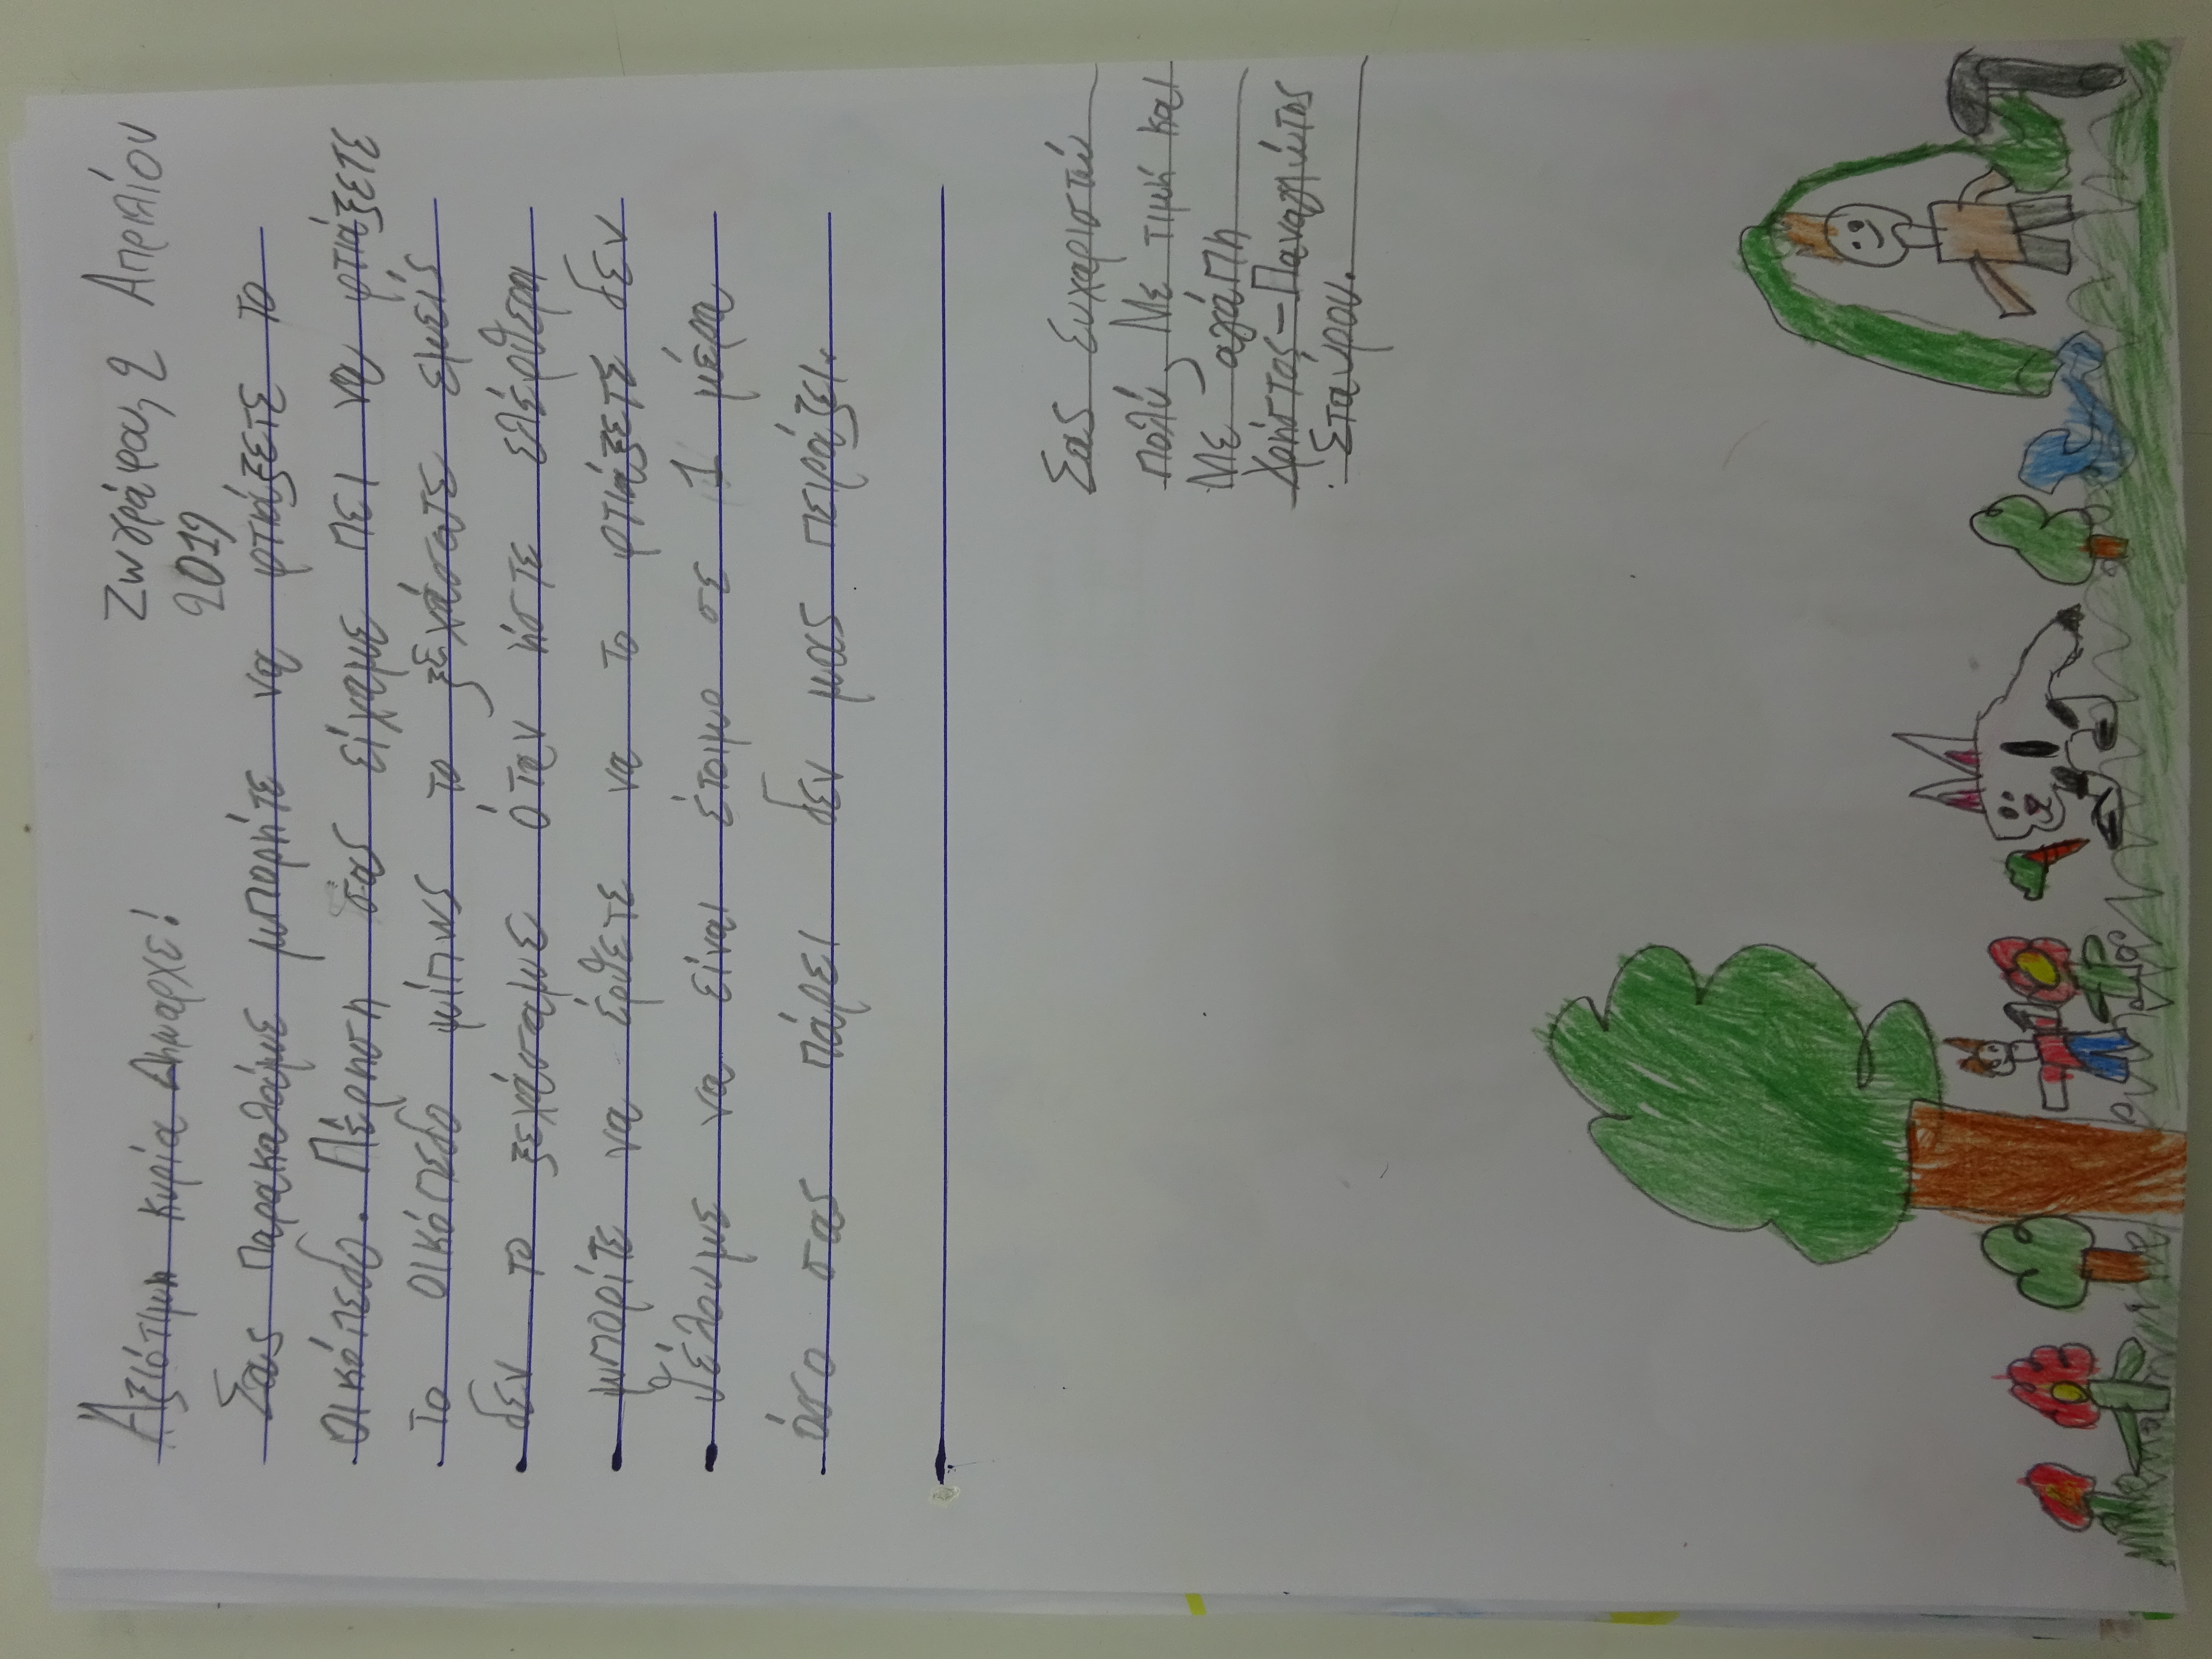 Ζωγράφου, 2 Απριλίου
2019
Αξιότιμη κυρία Δημαρχε!
Σας παρακαλούμε μπορήτε να φτιάξετε το
οικόπεδο. Πέρηση σας είχαμε πει να φτιάξετε
το οικόπεδο μύπως το ξεχάσατε εμείς
δεν το ξεχάσαμε όταν ήστε ελέφθεροι
μπορίτε να έρθετε να το φτιάξετε δεν
θέλουμε να είναι έτοιμο σε 1 μέρα
όσο σας πάρει δεν μας πειράζει.
Σας ευχαριστώ
πολύ Με τιμή και
Με αγάπη
Χρήστος-Παναγιώτης
Σταύρου.